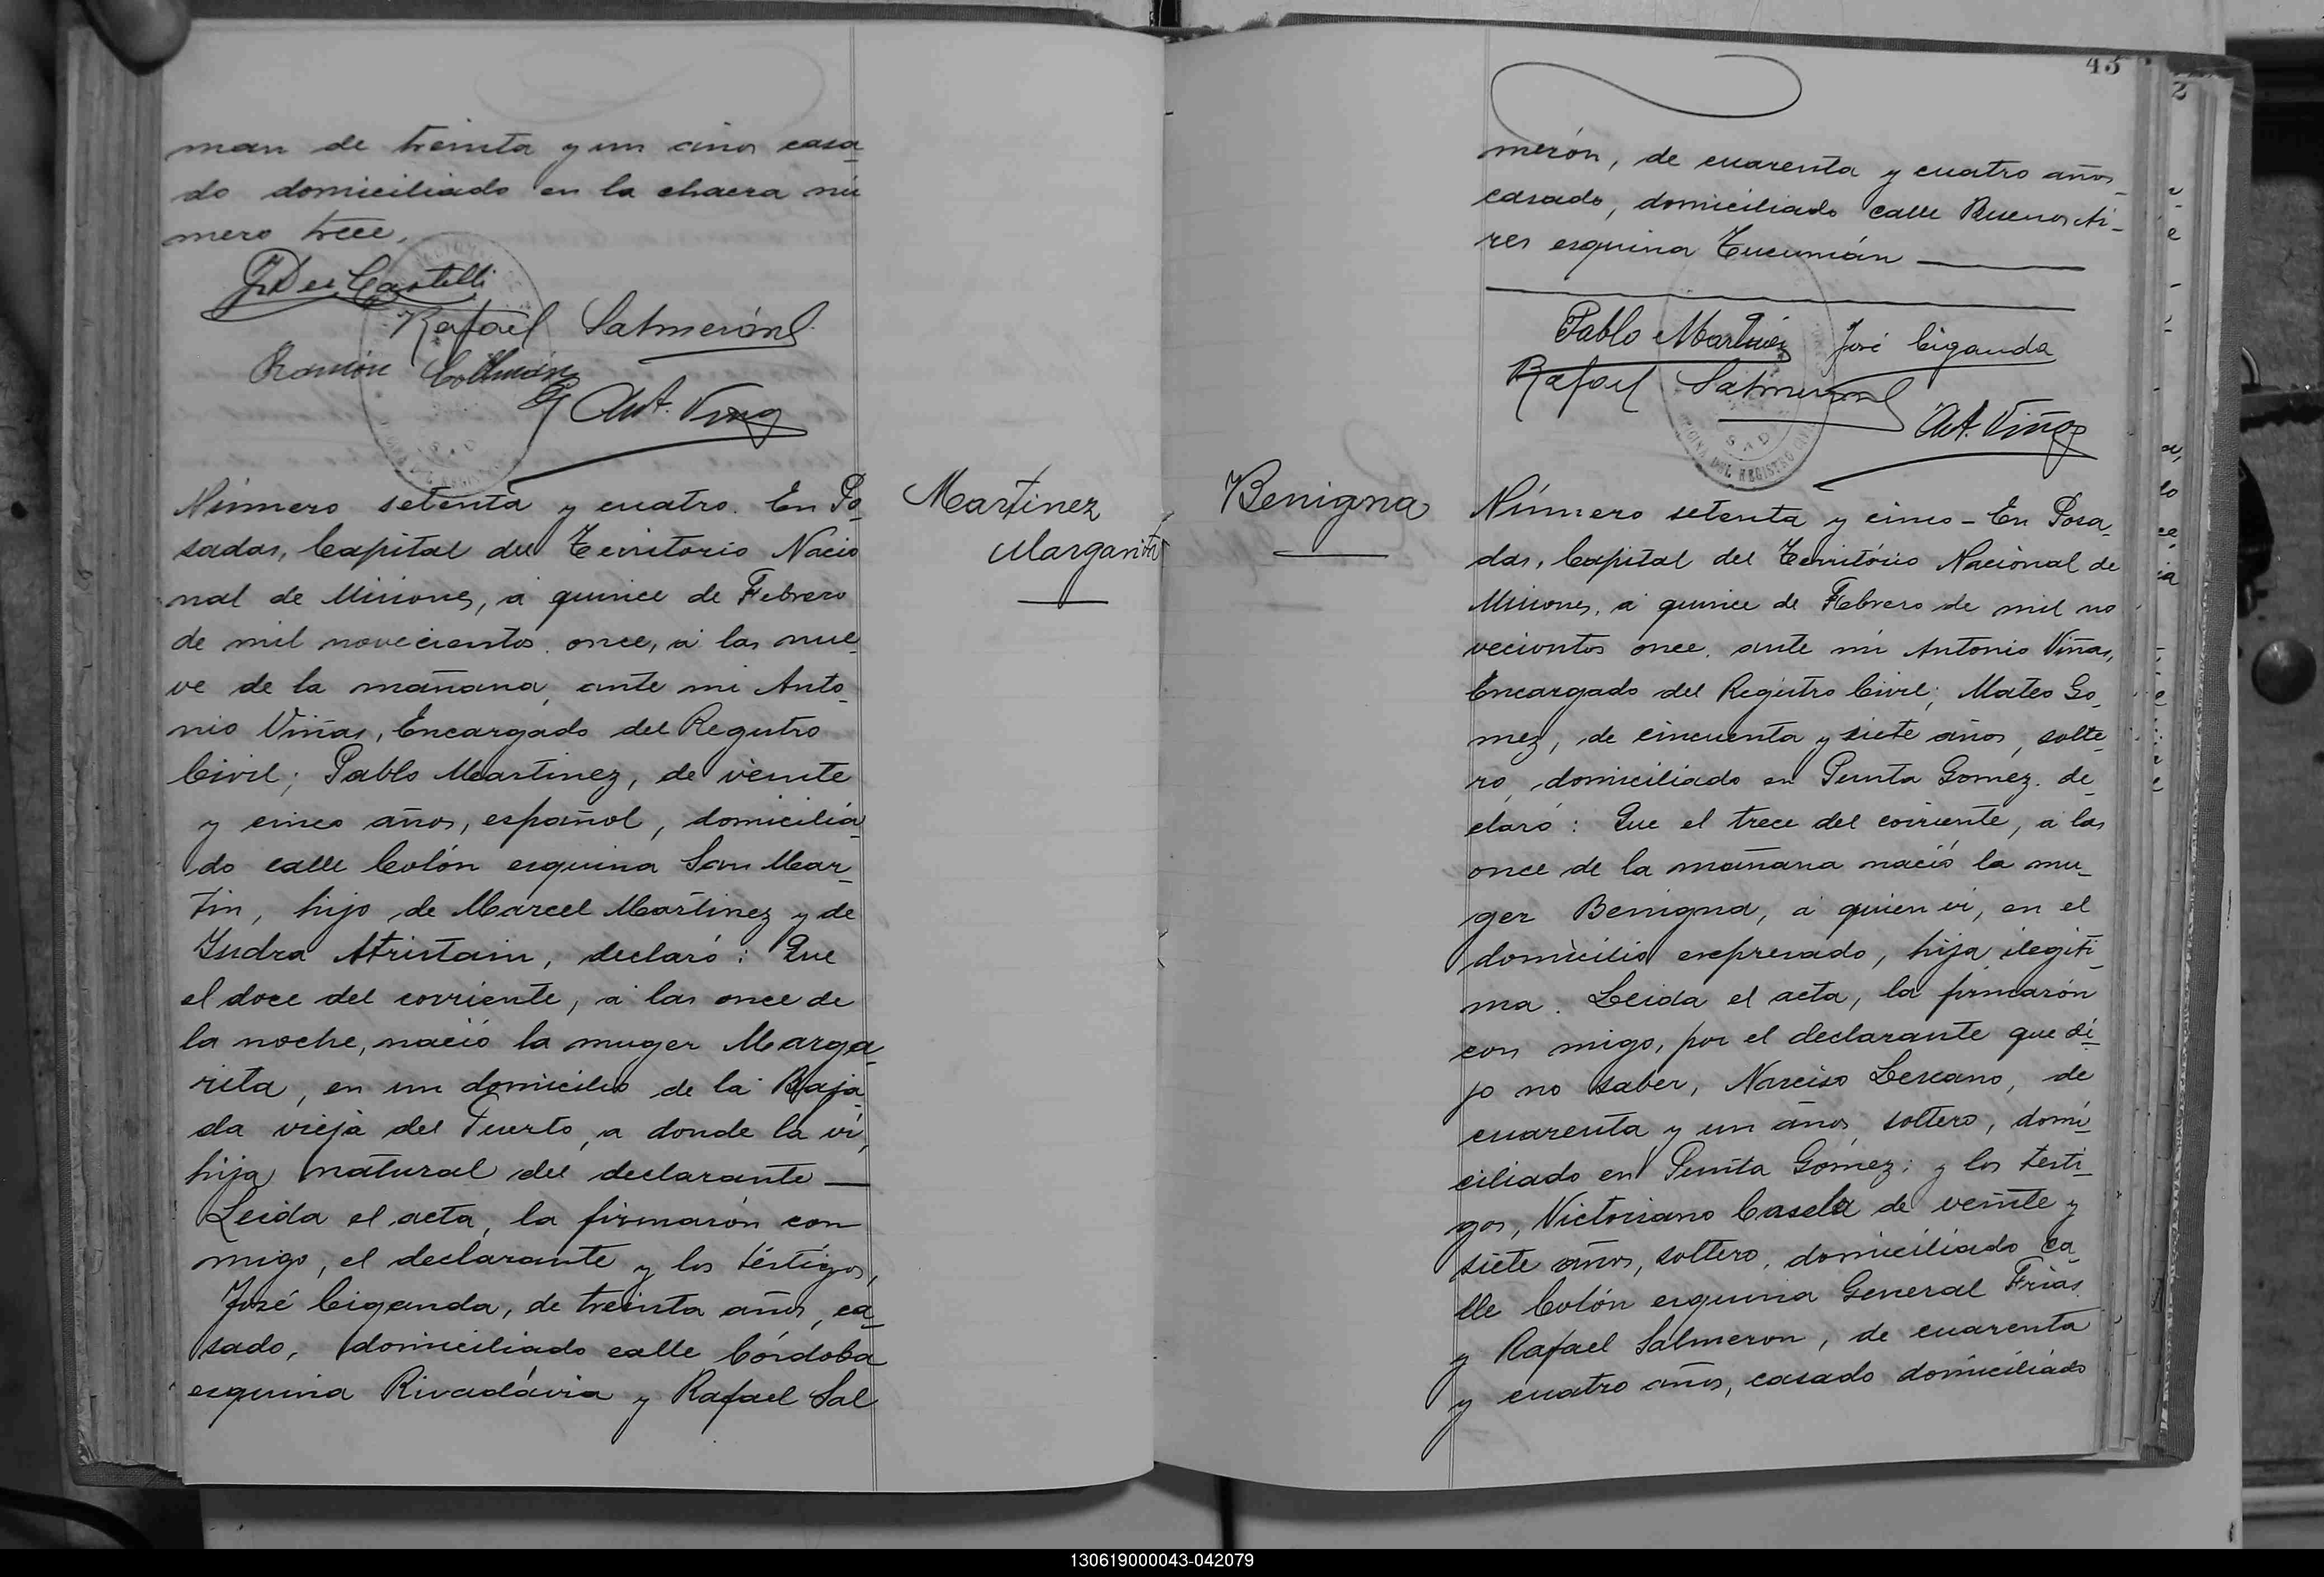 man de treinta y un años casa
do domiciliado en la chacra nú
mero trece.
Castelli
Rafael Salmerón
Ramón
Ant. Viñas
Número setenta y cuatro. En Po
sadas, Capital del Territorio Nacio
nal de Misiones, á quince de Febrero
de mil novecientos once, á las nue
ve de la mañana, ante mi Anto
nio Viñas, Encargado del Registro
Civil; Pablo Martinez, de veinte
y cinco años, español, domicilia
do calle Colón esquina San Mar
tin, hijo de Marcel Martinez y de
Atristain, declaró: Que
el doce del corriente, á las once de
la noche, nació la muger Marga
rita, en un domicilio de la Baja
da vieja del Puerto, a donde la ví,
hija natural del declarante —
Leida el acta, la firmarón con
migo, el declarante y los téstigos,
José Ciganda, de treinta años, ca
sado, domiciliado calle Córdoba
esquina Rivadávia y Rafael Sal
Martinez
Margarita
43
2
merón, de cuarenta y cuatro años
casado, domiciliado calle Buenos Ai-
res esquina Tucumán —
Pablo Martinez José Ciganda
Rafael Salmerón
Ant. Viñas
OFICINA DEL REGISTRO CIVIL
Benigna
Número setenta y cinco - En Posa
das, Capital del Território Nacional de
Misiones, á quince de Febrero de mil no
vecientos once. ante mi Antonio Viñas,
Encargado del Registro Civil; Mateo Go
mez, de cincuenta y siete años, solte
ro, domiciliado en Punta Gomez. de
claró: Que el trece del corriente, a las
once de la mañana nació la mu
ger Benigna, á quien ví, en el
domicilio expresado, hija ilegiti
ma. Leida el acta, la firmarón
con migo, por el declarante que di
jo no saber, Narciso Lescano, de
cuarenta y un años, soltero, domi
ciliado en Punta Gómez; y los testi
gos, Victoriano Casela de veinte y
siete años, soltero, domiciliado ca
lle Colón esquina General Frias.
y Rafael Salmeron, de cuarenta
y cuatro años, casado domiciliado
130619000043-042079